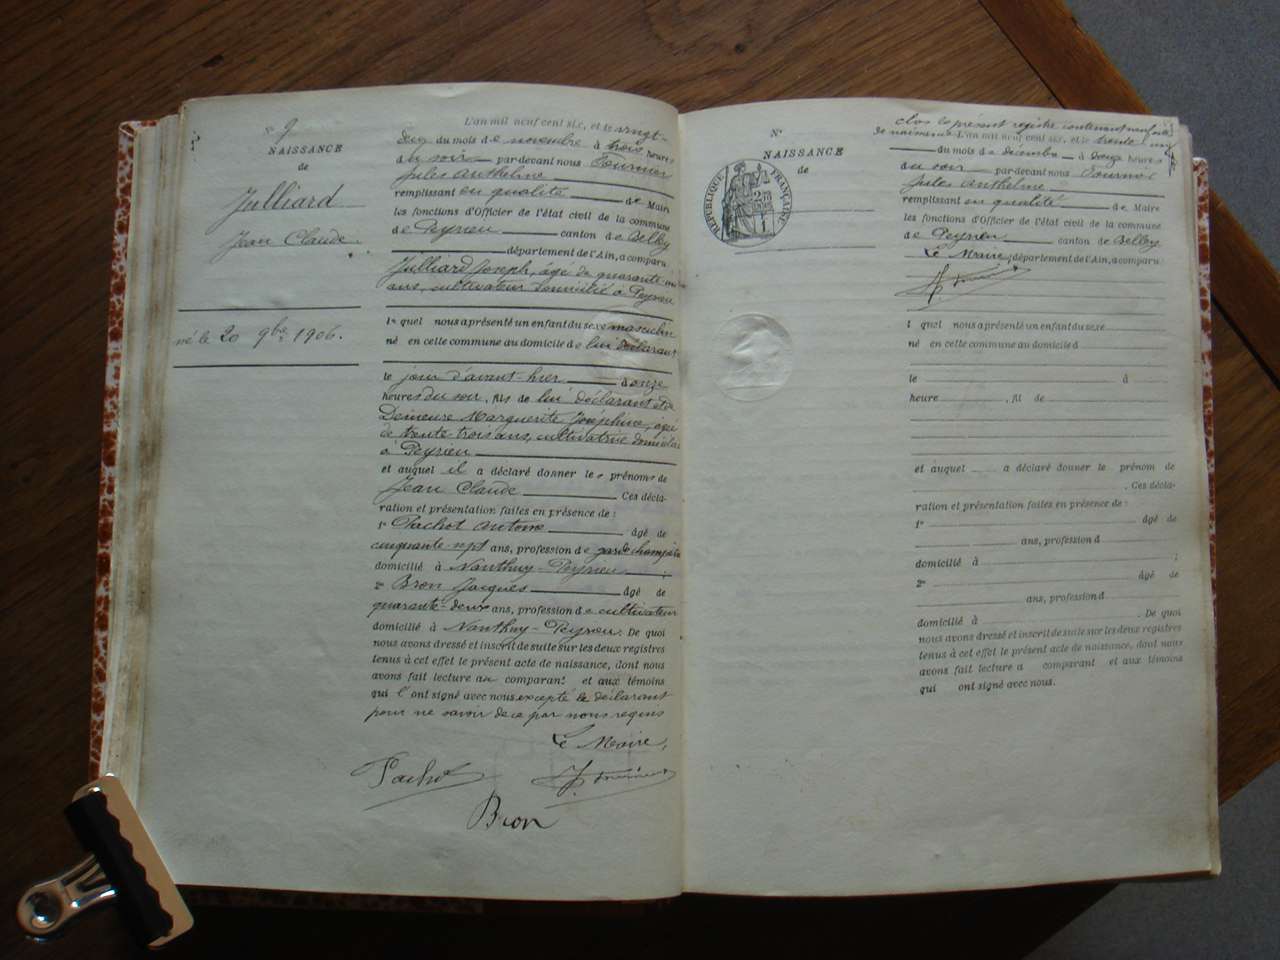 N° 9
NAISSANCE
de
Julliard
Jean Claude
né le 20 9bre 1906.
L'an mil neuf cent six, et le vingt-
deux du mois de novembre à trois heures
du soir par devant nous Fournier
Jules Anthelme
remplissant en qualité de Maire
les fonctions d'Officier de l'état civil de la commune
de Peyrieu canton de Belley
département de l'Ain, a comparu
Julliard Joseph, âgé de quarante
ans, cultivateur domicilié à Peyrieu
lequel nous a présenté un enfant du sexe masculin
né en cette commune au domicile de lui déclarant
le jour d'avant-hier à onze
heures du soir, fils de lui déclarant et de
Demeure Marguerite Joséphine, agée
de trente trois ans, cultivatrice domiciliée
à Peyrieu
et auquel il a déclaré donner les prénoms de
Jean Claude Ces décla-
ration et présentation faites en présence de :
1° Pachot Antoine âgé de
cinquante-sept ans, profession de garde champêtre
domicilié à Nanthuy-Peyrieu ;
2° Bron Jacques âgé de
quarante-deux ans, profession de cultivateur
domicilié à Nanthuy-Peyrieu. De quoi
nous avons dressé et inscrit de suite sur les deux registres
tenus à cet effet le présent acte de naissance, dont nous
avons fait lecture au comparant et aux témoins
qui l'ont signé avec nous excepté le déclarant
pour ne savoir de ce par nous requis
Le Maire,
Pachot
J. Fournier
Bron
clos le présent registre contenant neuf actes
de naissance
N°
NAISSANCE
de
RÉPUBLIQUE FRANÇAISE
L'an mil neuf cent six, et le trente un
du mois de décembre à douze heures
du soir par devant nous Fournier
Jules Anthelme
remplissant en qualité de Maire
les fonctions d'Officier de l'état civil de la commune
de Peyrieu canton de Belley
Le Maire, département de l'Ain, a comparu
J. Fournier
l quel nous a présenté un enfant du sexe
né en cette commune au domicile d
le à
heure , fil de
et auquel a déclaré donner le prénom de
. Ces décla-
ration et présentation faites en présence de :
1° âgé de
ans, profession d
domicilié à ;
2° âgé de
ans, profession d
domicilié à . De quoi
nous avons dressé et inscrit de suite sur les deux registres
tenus à cet effet le présent acte de naissance, dont nous
avons fait lecture a comparant et aux témoins
qui ont signé avec nous.